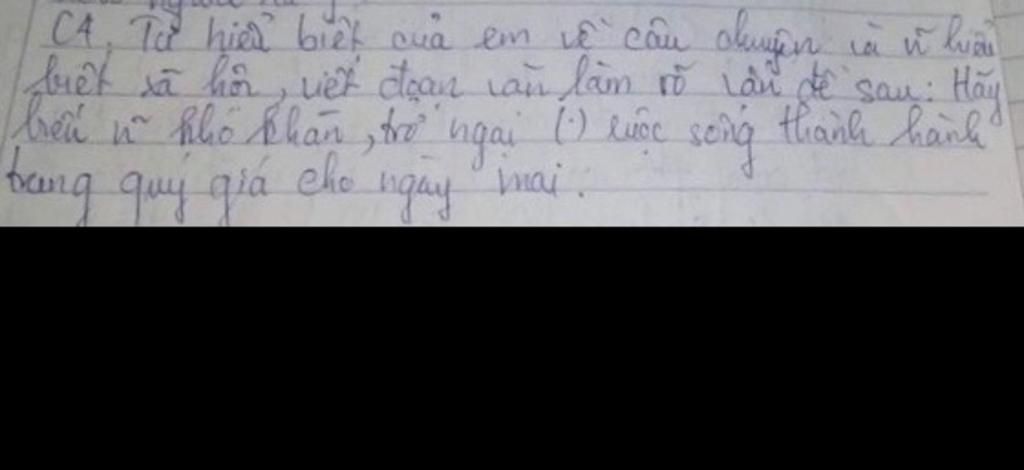 C4, Từ hiểu biết của em về câu chuyện và n~ hiểu
biết xã hội, viết đoạn văn làm rõ vấn đề sau: Hãy
biến n~ khó khăn, trở ngại (.) cuộc sống thành hành
trang quý giá cho ngày mai.